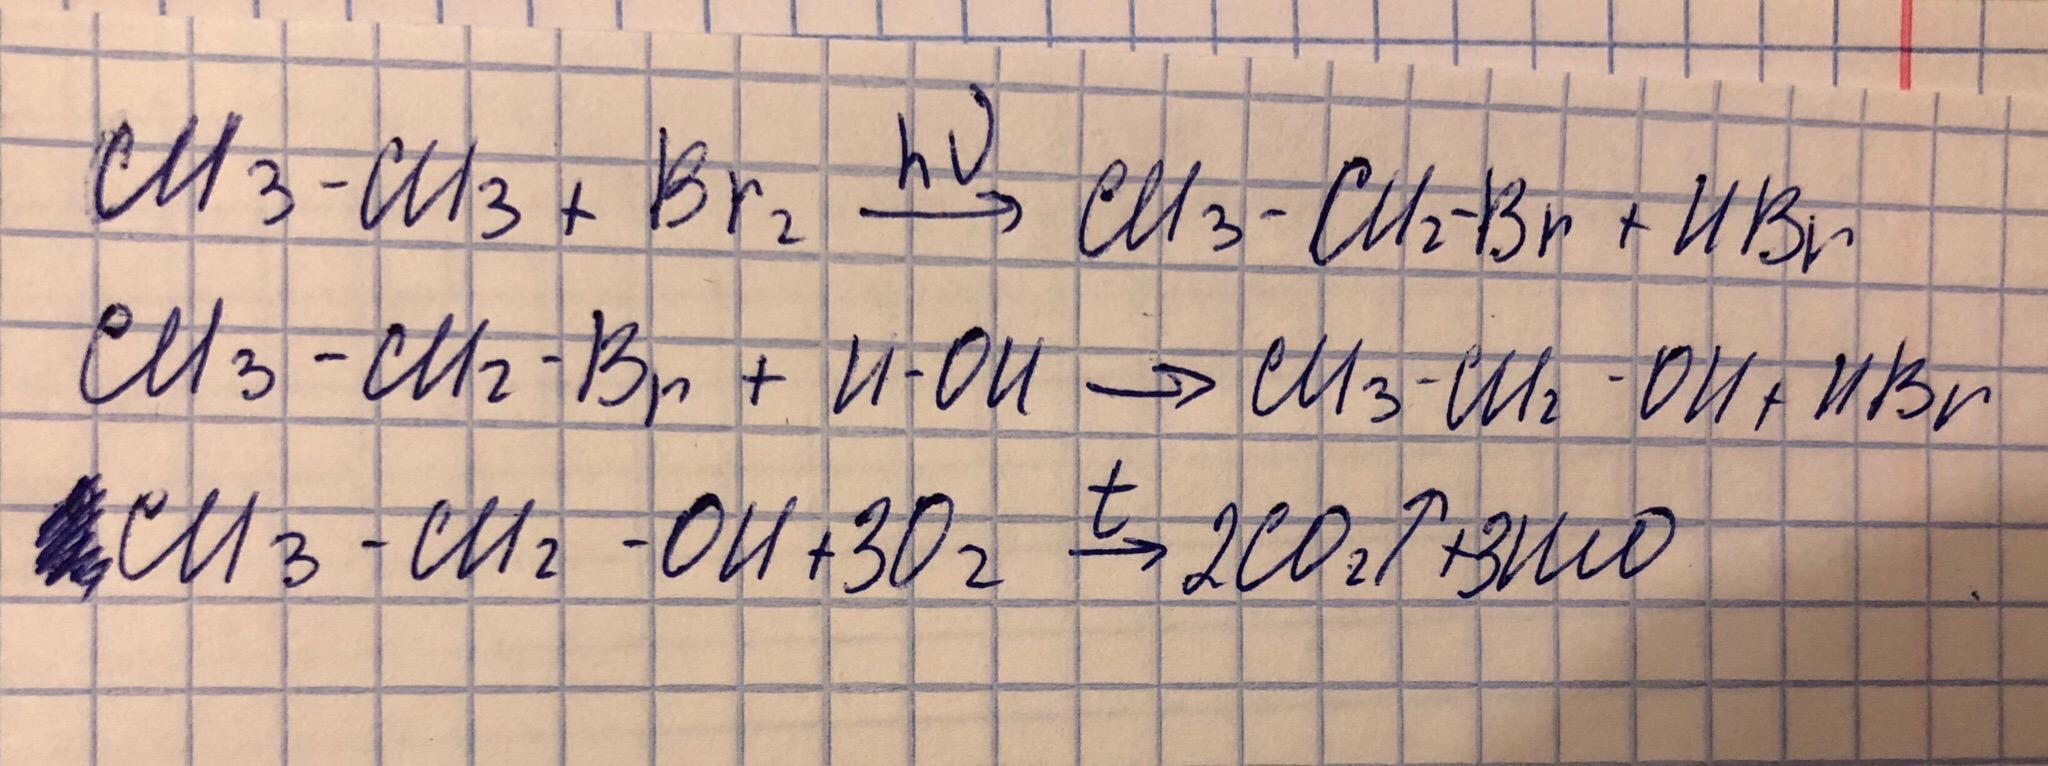 CH3-CH3 + Br2 hν→ CH3-CH2-Br + HBr
CH3-CH2-Br + H-OH → CH3-CH2-OH + HBr
CH3-CH2-OH + 3O2 t→ 2CO2↑ + 3HHO